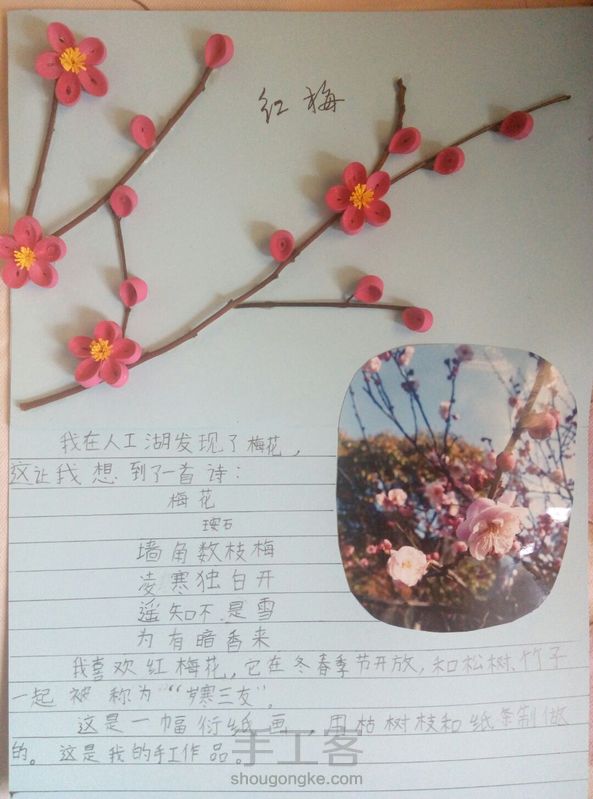 红梅
我在人工湖发现了梅花，
这让我想到了一首诗：
梅花
王安石
墙角数枝梅
凌寒独自开
遥知不是雪
为有暗香来
我喜欢红梅花，它在冬春季节开放，和松树、竹子
一起被称为“岁寒三友”。
这是一幅衍纸画，用枯树枝和纸条制做
的。这是我的手工作品。
手工客
shougongke.com